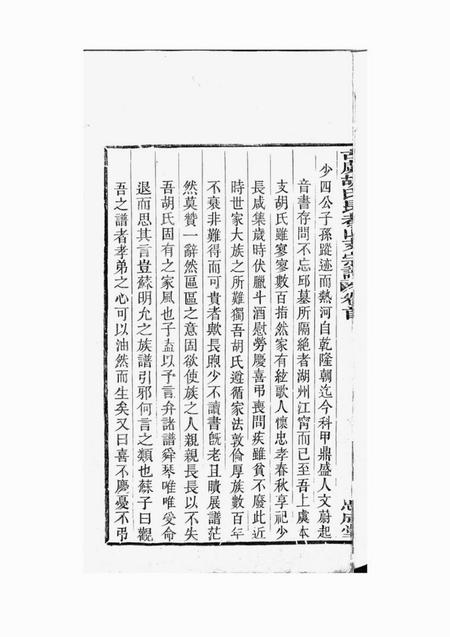 少四公子孫蹤迹而熱河自乾隆朝迄今科甲鼎盛人文蔚起
音書存問不忘邱墓所隔絶者湖州江甯而已至吾上虞本
支胡氏雖寥寥數百指然家有絃歌人懷忠孝春秋享祀少
長咸集歲時伏臘斗酒慰勞慶喜弔喪問疾雖貧不廢此近
時世家大族之所難獨吾胡氏遵循家法敦倫厚族數百年
不衰非難得而可貴者歟長煦少不讀書旣老且聵展譜茫
然莫贊一辭然區區之意固欲使族之人親親長長以不失
吾胡氏固有之家風也子盍以予言弁諸譜舜琴唯唯受命
退而思其言豈蘇明允之族譜引邪何言之類也蘇子曰觀
吾之譜者孝弟之心可以油然而生矣又曰喜不慶憂不弔